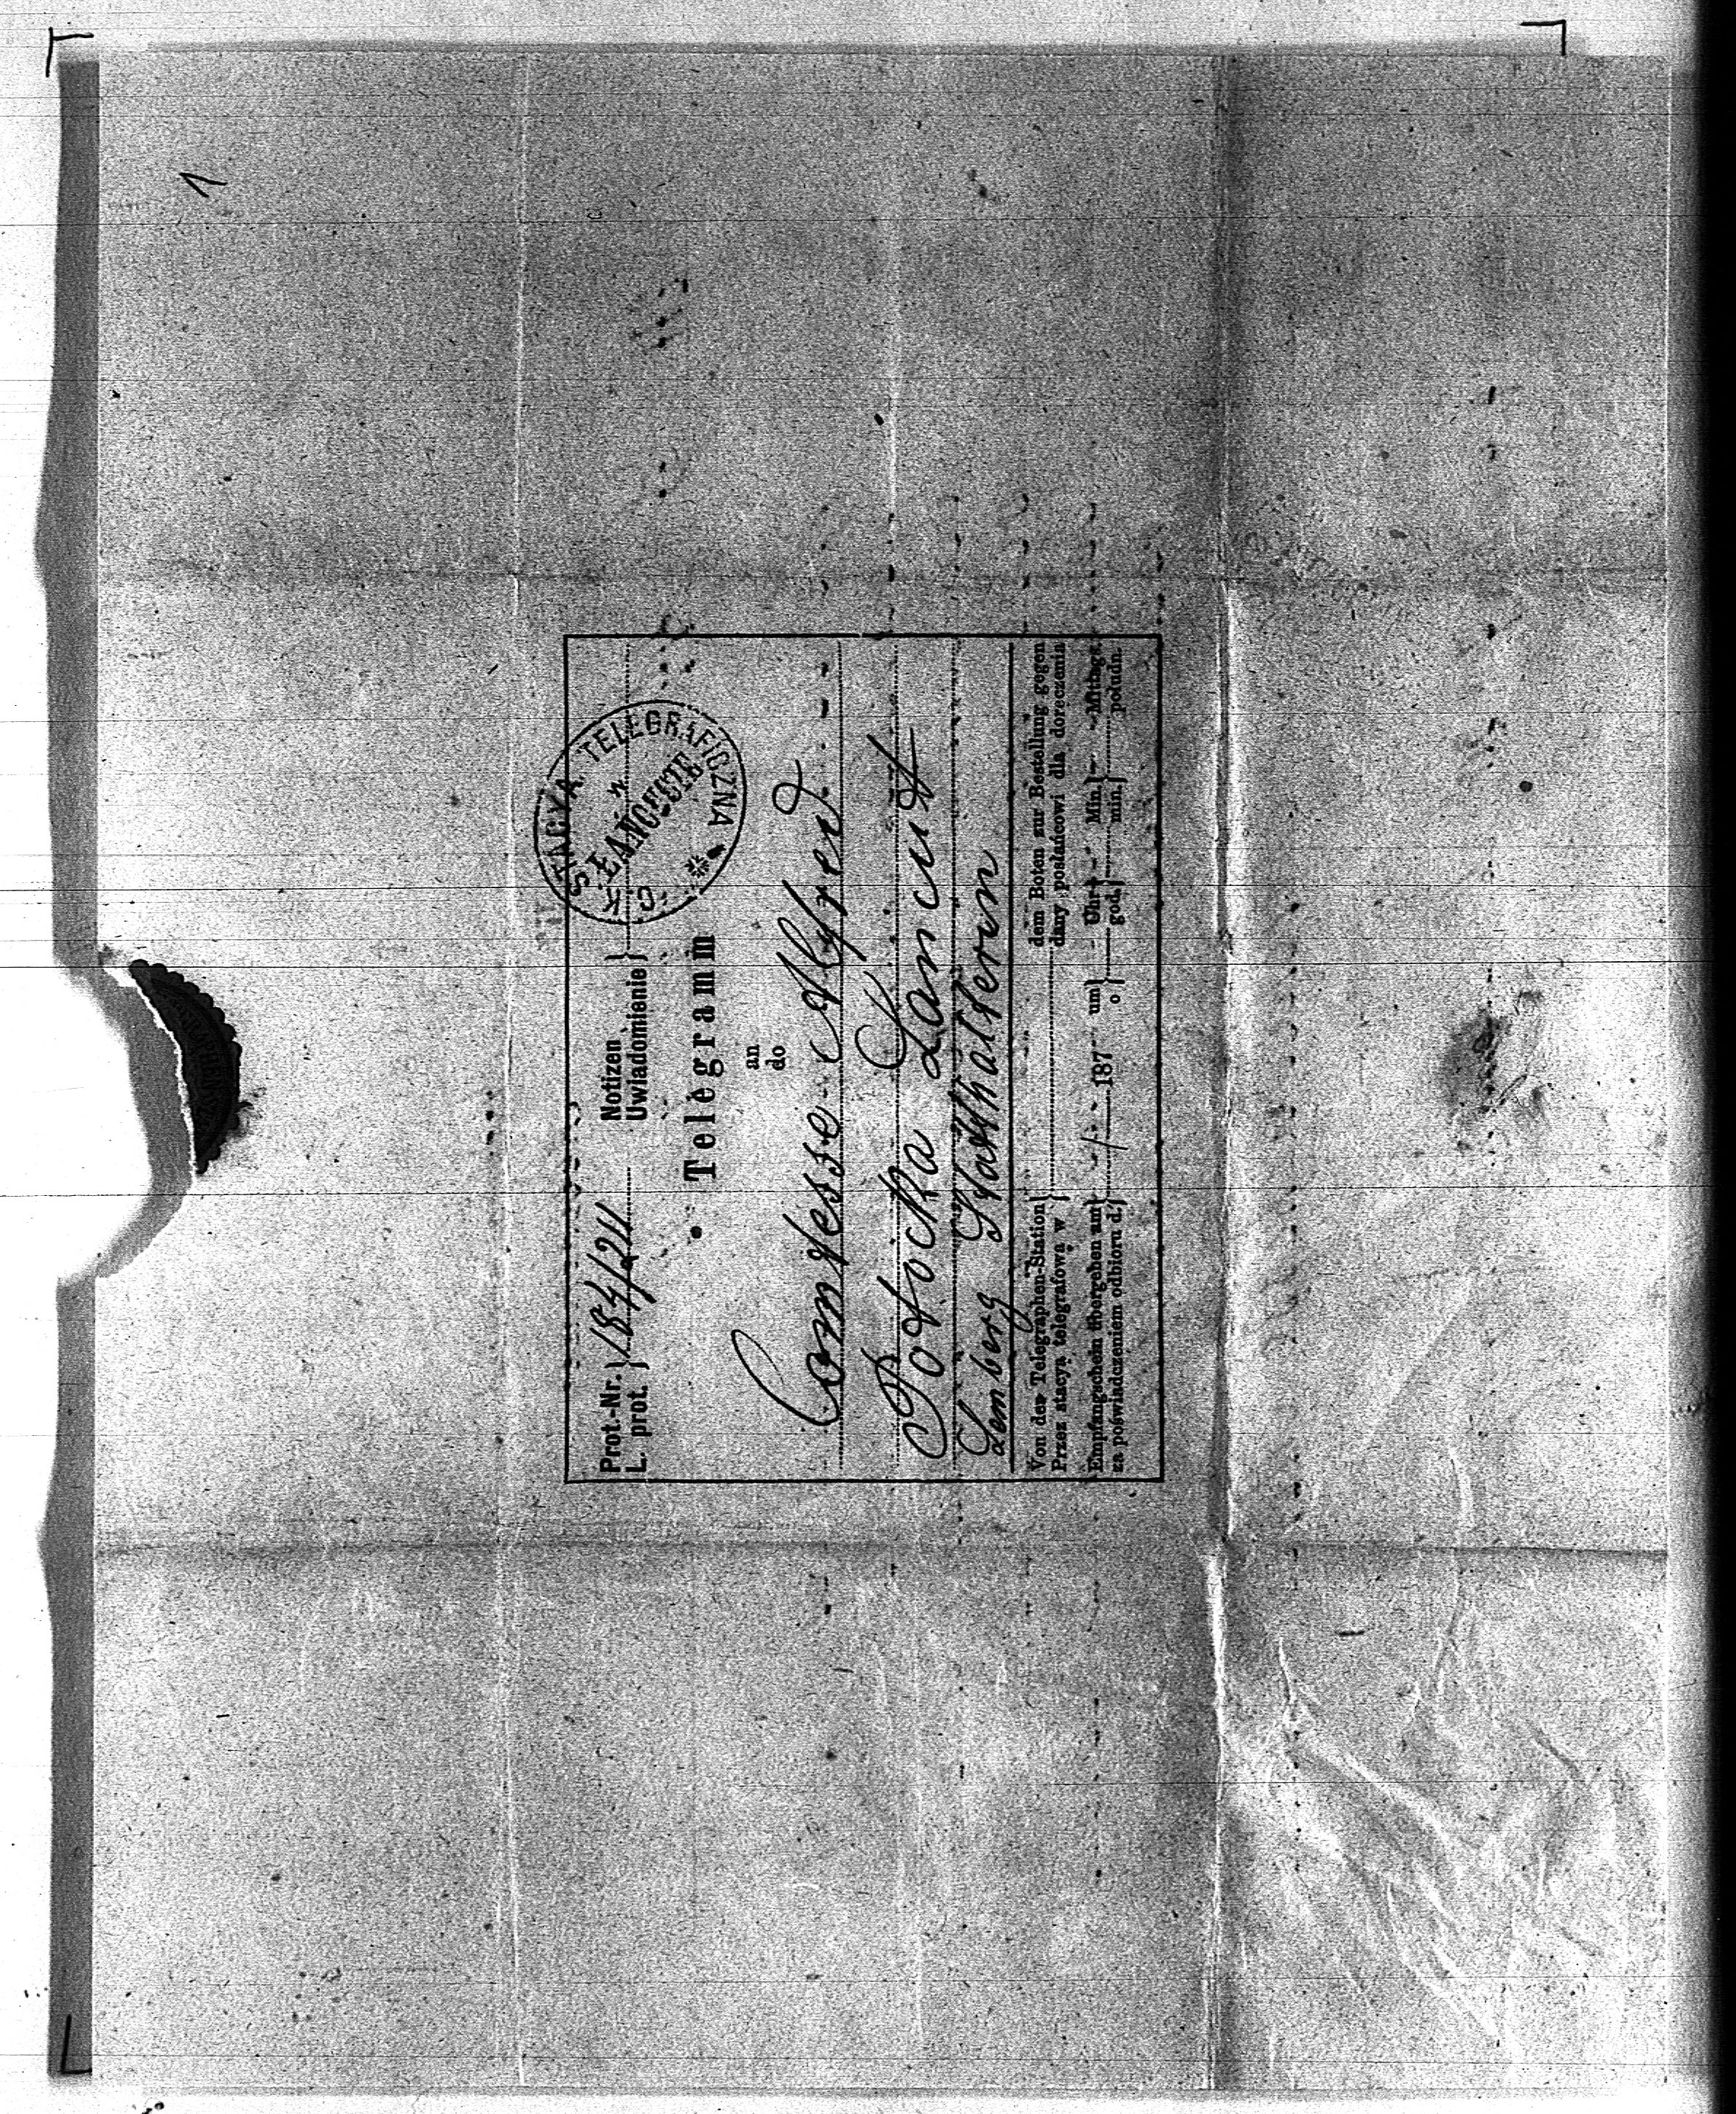 1
Prot.-Nr. } 184/211 Notizen }
L. prot. } Uwiadomienie }
C. K. STACYA TELEGRAFICZNA
Telegramm
an
do
Comtesse Alfred
Potocka
Lancut
Lemberg Statthalterin
Von der Telegraphen-Station } dem Boten zur Bestellung gegen
Przez stacyą telegrafową w } dany posłańcowi dla doręczenia
Empfangschein übergeben am } 187 um } Uhr } Min. } Mittags.
za poświadczeniem odbioru d. } o } god. } min. } połudn.